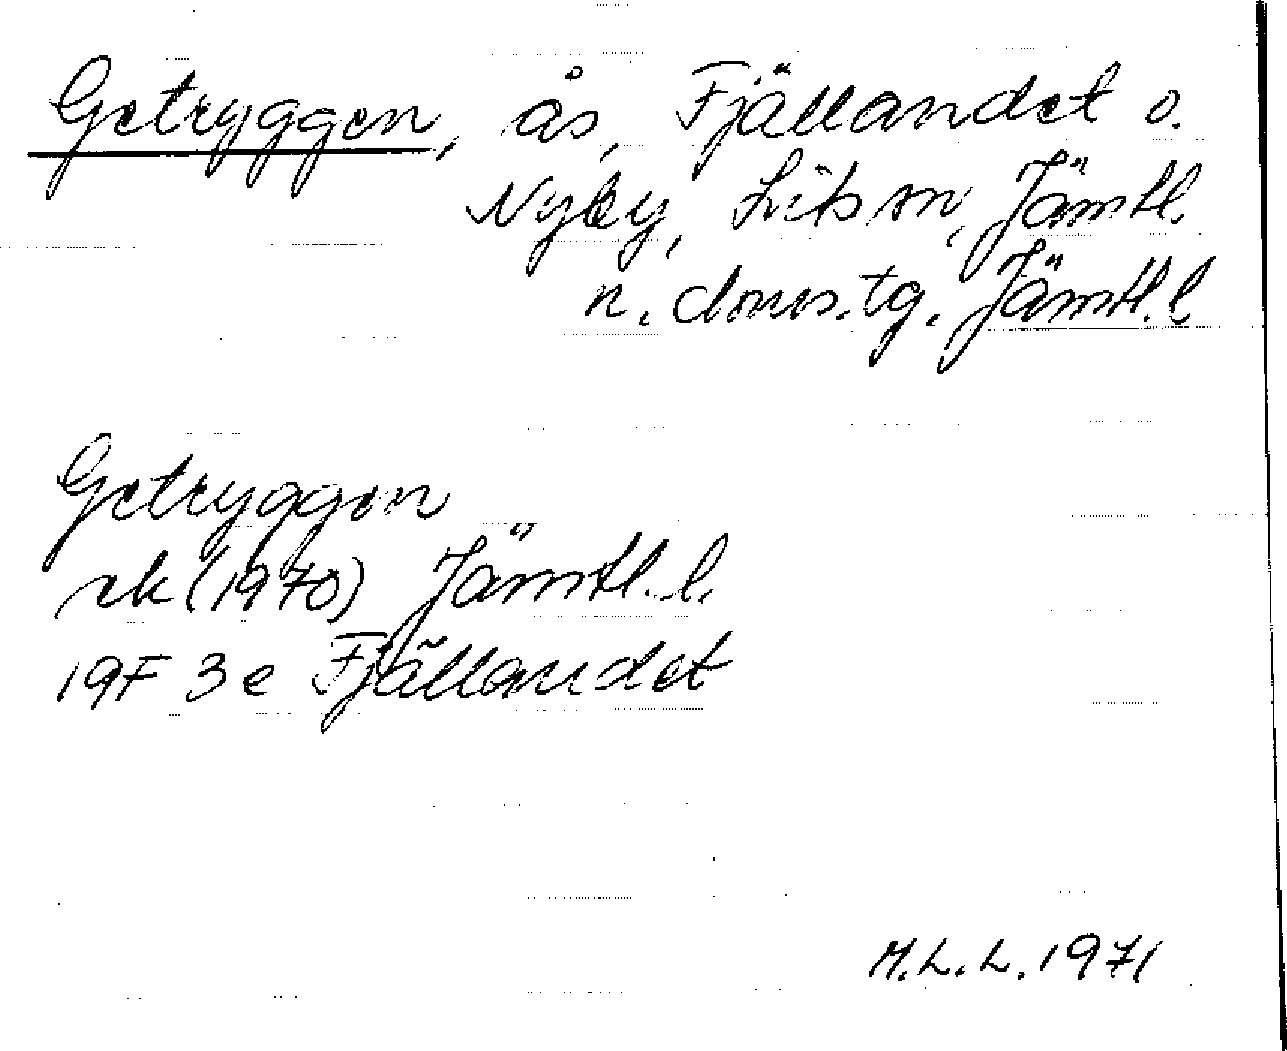 Getryggen, ås, Fjällandet o.
Nyby, Lits sn, Jämtl.
n. doms.tg. Jämtl. l
Getryggen
rk (1970) Jämtl. l.
19F 3e Fjällandet
M.L.L. 1971